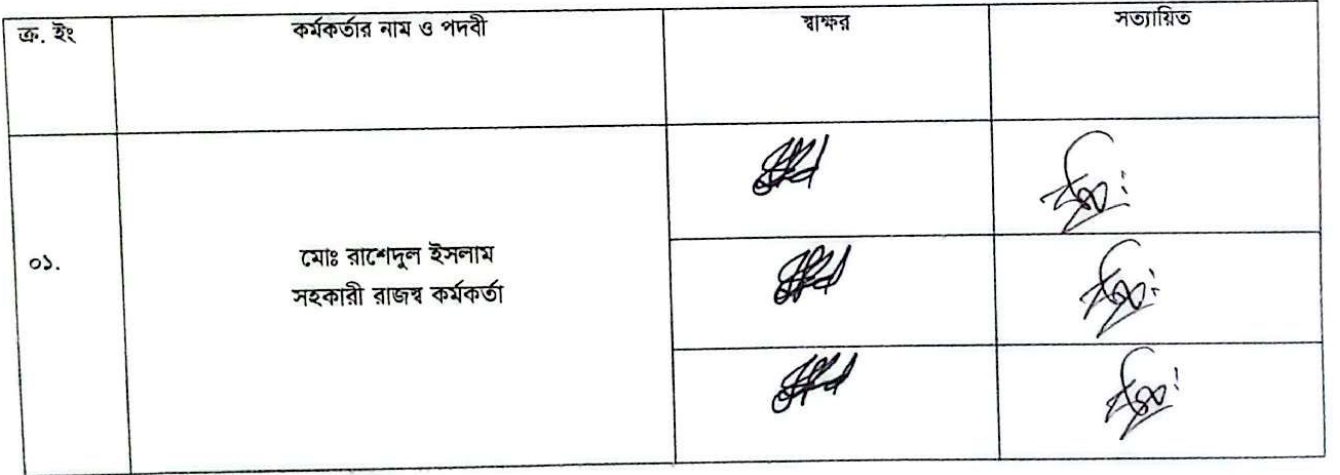 ক্র. ইং
কর্মকর্তার নাম ও পদবী
স্বাক্ষর
সত্যায়িত
০১.
মোঃ রাশেদুল ইসলাম
সহকারী রাজস্ব কর্মকর্তা